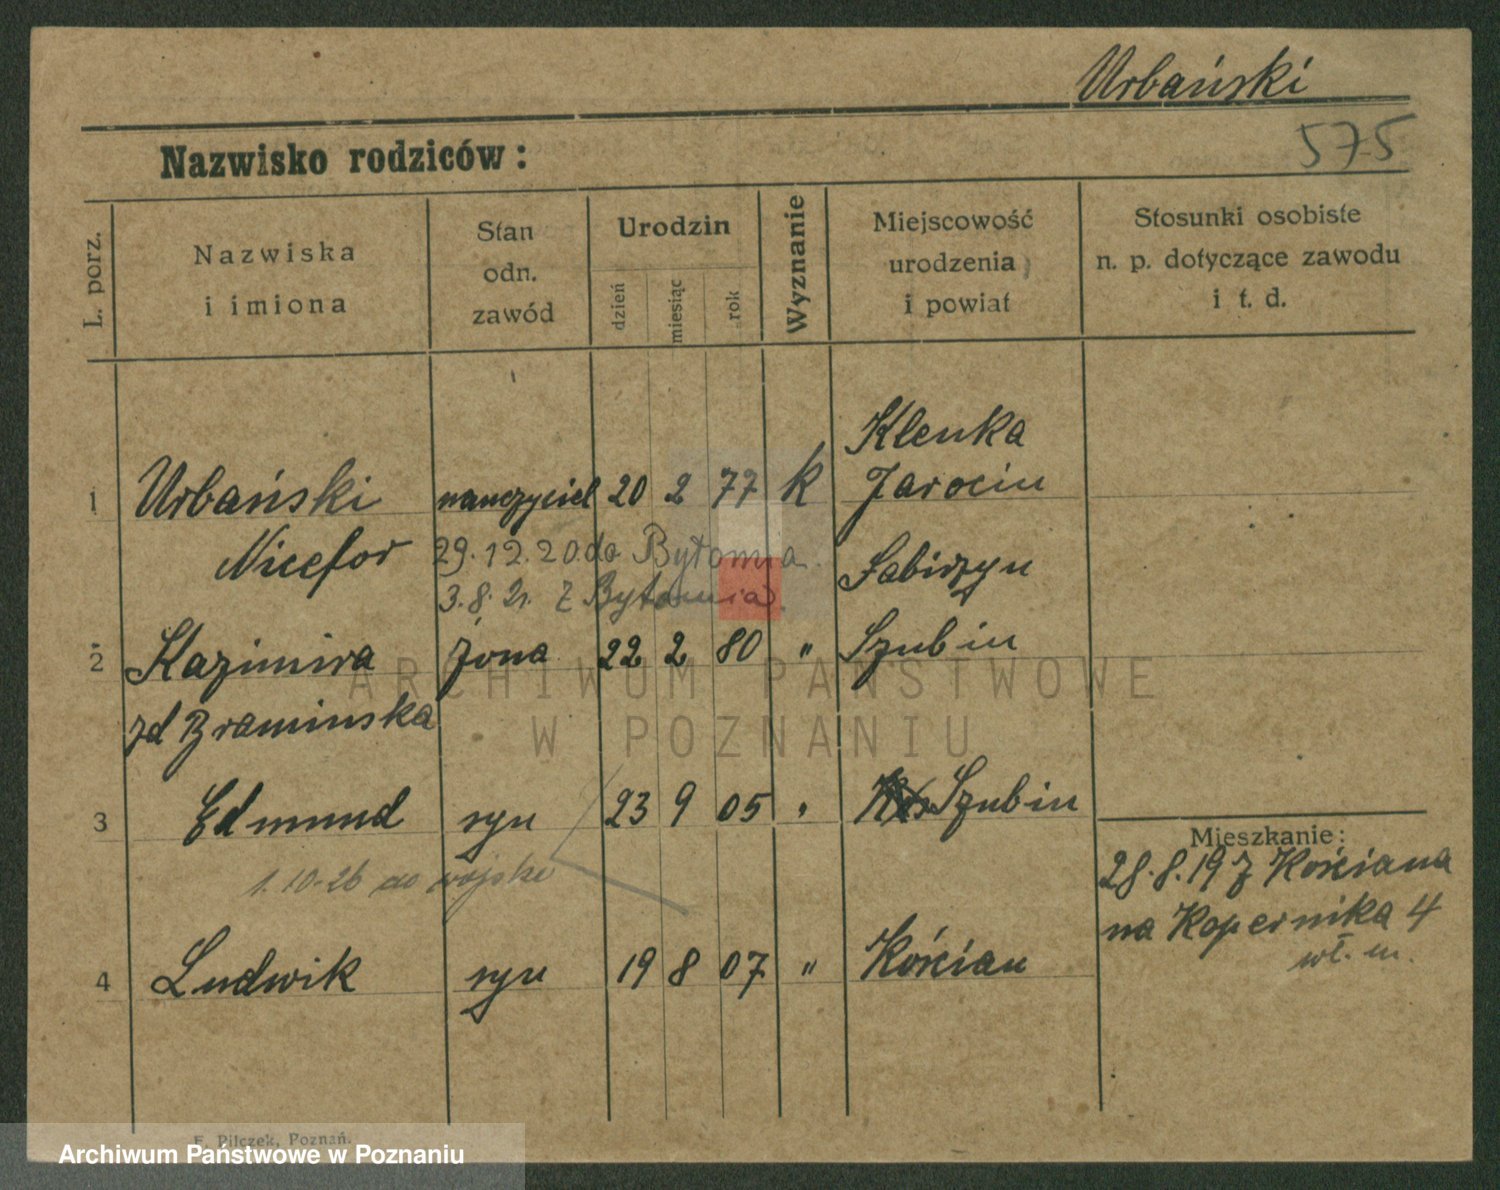 Urbański
575
Nazwisko rodziców:
L. porz.
Nazwiska
i imiona
Stan
odn.
zawód
Urodzin
dzień
miesiąc
rok
Wyznanie
Miejscowość
urodzenia
i powiat
Stosunki osobiste
n. p. dotyczące zawodu
i t. d.
Klenka
1 Urbański nauczyciel 20 2 77 k Jarocin
Nicefor 29.12.20. do Bytomia.
3.8.21. z Bytomia.
2 Kazimira żona 22 2 80 " Szubin
zd
3 Edmund syn 23 9 05 " Szubin
1.10-26 do wojska
4 Ludwik syn 19 8 07 " Kościan
Mieszkanie:
28.8.19 z Kościana
na Kopernika 4
wł. m.
E. Pilczek, Poznań.
ARCHIWUM PAŃSTWOWE
W POZNANIU
Archiwum Państwowe w Poznaniu